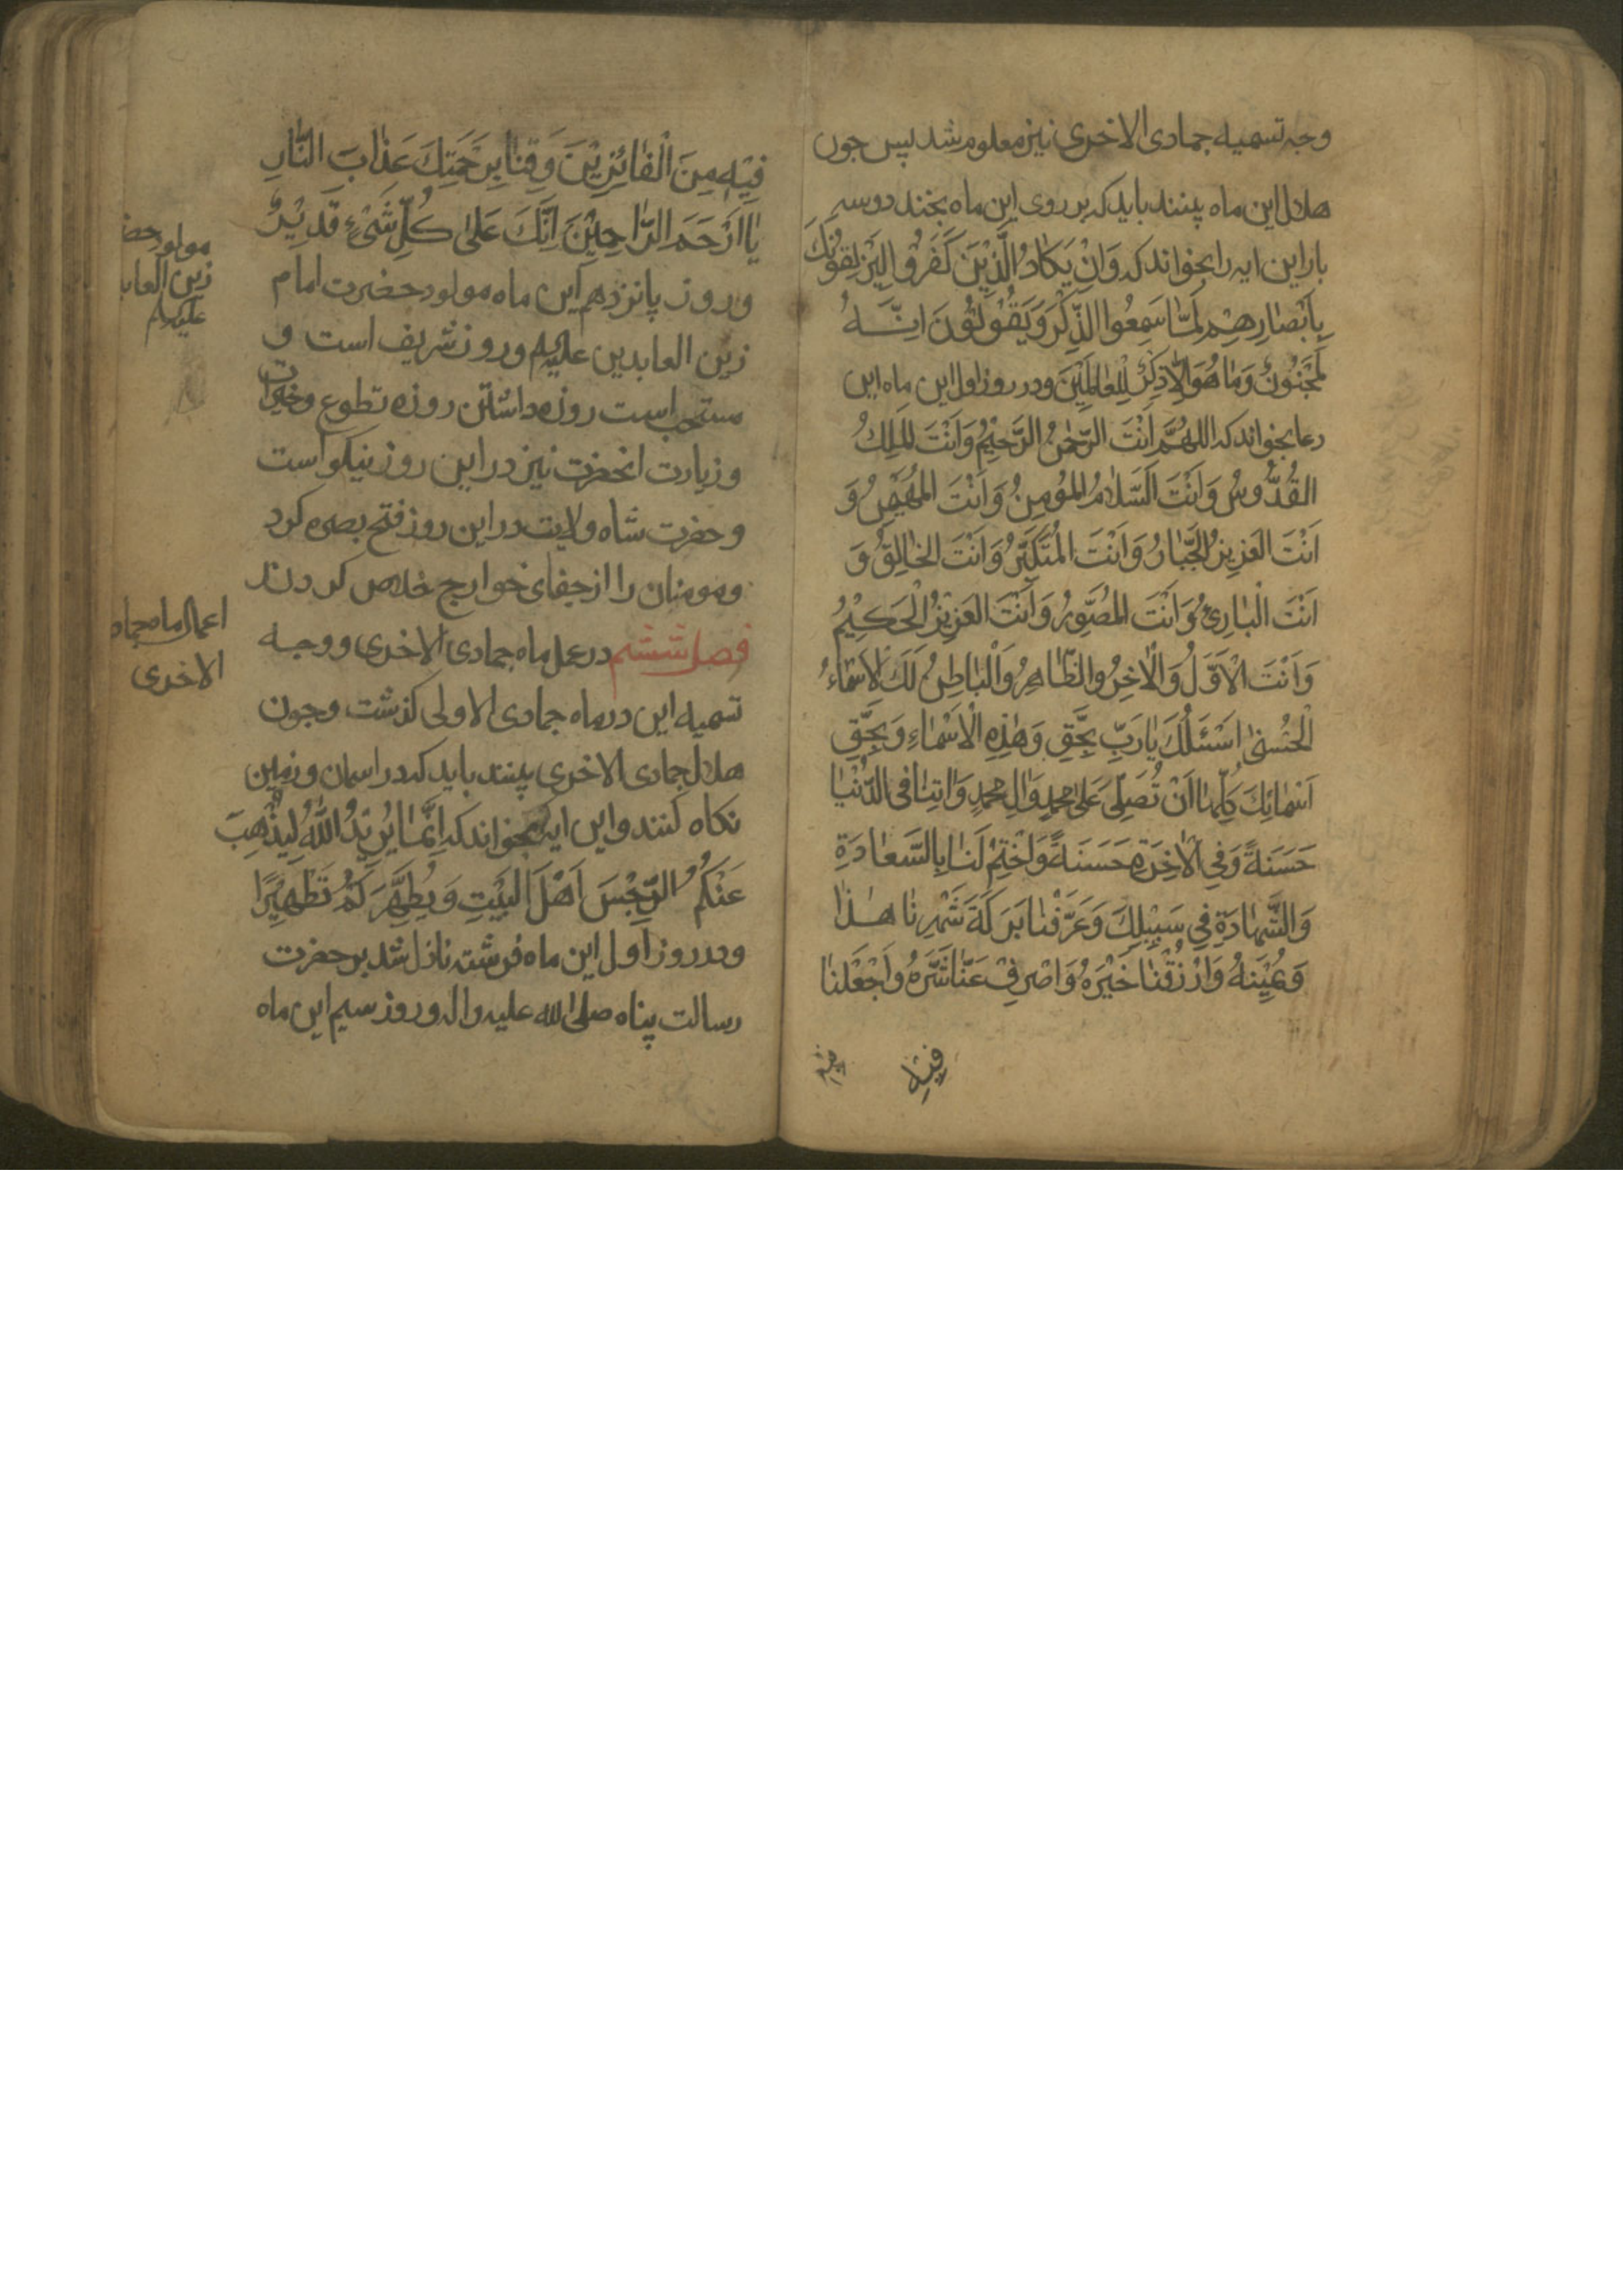 وجه تسمیه جمادی الاخری نیز معلوم شد پس جون
هلال این ماه ببینند باید که بر روی این ماه بخند دوسه
بار این ایه را بخوانند که وَاِنْ یَکٰادُ الَّذِیْنَ کَفَرُوْا لَیُزْلِقُوْنَکَ
بِاَبْصٰارِهِمْ لَمّٰا سَمِعُوا الذِّکْرَ وَیَقُوْلُوْنَ اِنَّهُ
لَمَجْنُوْنٌ وَمٰا هُوَ اِلّٰا ذِکْرٌ لِلْعٰالَمِیْنَ ودر روز اول این ماه این
دعا بخوانند که اللهُمَّ اَنْتَ الرَّحْمٰنُ الرَّحِیْمُ وَاَنْتَ المَلِکُ
القُدُّوسُ وَاَنْتَ السَّلٰامُ المُؤمِنُ وَاَنْتَ المُهَیْمِنُ وَ
اَنْتَ العَزِیزُ الجَبّٰارُ وَاَنْتَ المُتَکَبِّرُ وَاَنْتَ الخٰالِقُ وَ
اَنْتَ الْبٰارِئُ وَاَنْتَ المُصَوِّرُ وَاَنْتَ العَزِیْزُ الْحَکِیْمُ
وَاَنْتَ الْاَوَّلُ وَالْاٰخِرُ وَالظّٰاهِرُ وَالْبٰاطِنُ لَکَ الْاَسْمٰاءُ
الْحُسْنٰی اَسْئَلُکَ یٰا رَبِّ بِحَقِّ وَهٰذِهِ الْاَسْمٰاءِ وَبِحَقِّ
اَسْمٰائِکَ کُلِّهٰا اَنْ تُصَلِّیَ عَلٰی مُحمدٍ وَاٰلِ مُحمدٍ وَاٰتِنٰا فی الدُّنْیٰا
حَسَنَةً وَفِی الْاٰخِرَةِ حَسَنَةً وَاخْتِمْ لَنٰا بِالسَّعٰادَةِ
وَالشَّهٰادَةِ فِی سَبِیْلِکَ وَعَرِّفْنٰا بَرَکَةَ شَهْرِنٰا هٰذٰا
وَیُمْنَهُ وَارْزُقْنٰا خَیْرَهُ وَاصْرِفْ عَنّٰا شَرَّهُ وَاجْعَلْنٰا
فِیْهِ
فِیْهِ مِنَ الْفٰائِزِیْنَ وَقِنٰا بِرَحْمَتِکَ عَذٰابَ النّٰارِ
یٰا اَرْحَمَ الرّٰاحِمِیْنَ اِنَّکَ عَلٰی کُلِّ شَیْءٍ قَدِیْرٌ
وروز پانزدهم این ماه مولود حضرت امام
زین العابدین علیه السلم وروز شریف است و
مستحب است روزه داشتن روزه تطوع وخیرات
وزیارت انحضرت نیز در این روز نیکو است
وحضرت شاه ولایت در این روز فتح بصره کرد
ومومنان را از جفای خوارج خلاص کردند
فصل ششم در عمل ماه جمادی الاخری ووجه
تسمیه این در ماه جمادی الاولی کذشت وجون
هلال جمادی الاخری ببینند باید که در اسمان وزمین
نکاه کنند واین ایه بخوانند که اِنَّمٰا یُرِیْدُ اللّٰهُ لِیُذْهِبَ
عَنْکُمُ الرِّجْسَ اَهْلَ البَیْتِ وَیُطَهِّرَکُمْ تَطْهِیْرًا
ودر روز اول این ماه فرشته نازل شد بر حضرت
رسالت پناه صلی الله علیه واله وروز سیم این ماه
مولود حضر
زین العابد
علیه السلم
اعمال ماه جماد
الاخری